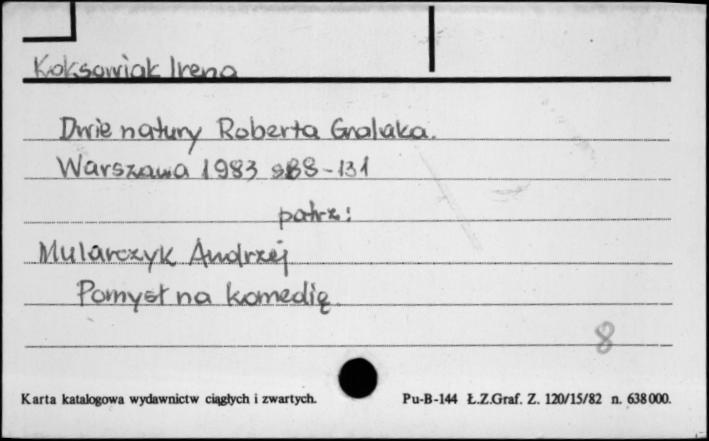 Koksowiak Irena
Dwie natury Roberta Gralaka.
Warszawa 1983 s88-131
patrz:
Mularczyk Andrzej
Pomysł na komedię.
8
Karta katalogowa wydawnictw ciągłych i zwartych.
Pu-B-144 Ł.Z.Graf. Z. 120/15/82 n. 638000.